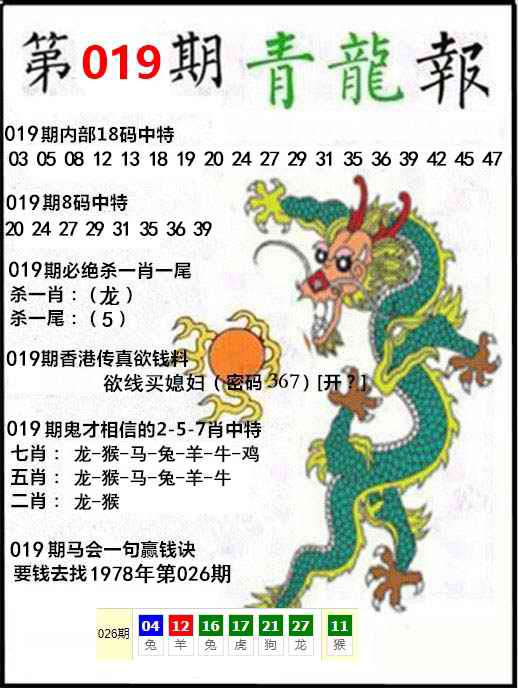 第019期青龍報
019期内部18码中特
03 05 08 12 13 18 19 20 24 27 29 31 35 36 39 42 45 47
019期8码中特
20 24 27 29 31 35 36 39
019期必绝杀一肖一尾
杀一肖：（龙）
杀一尾：（5）
019期香港传真欲钱料
欲线买媳妇（密码367）[开？]
019期鬼才相信的2-5-7肖中特
七肖： 龙-猴-马-兔-羊-牛-鸡
五肖： 龙-猴-马-兔-羊-牛
二肖： 龙-猴
019期马会一句赢钱诀
要钱去找1978年第026期
026期 04 12 16 17 21 27 11
兔 羊 兔 虎 狗 龙 猴